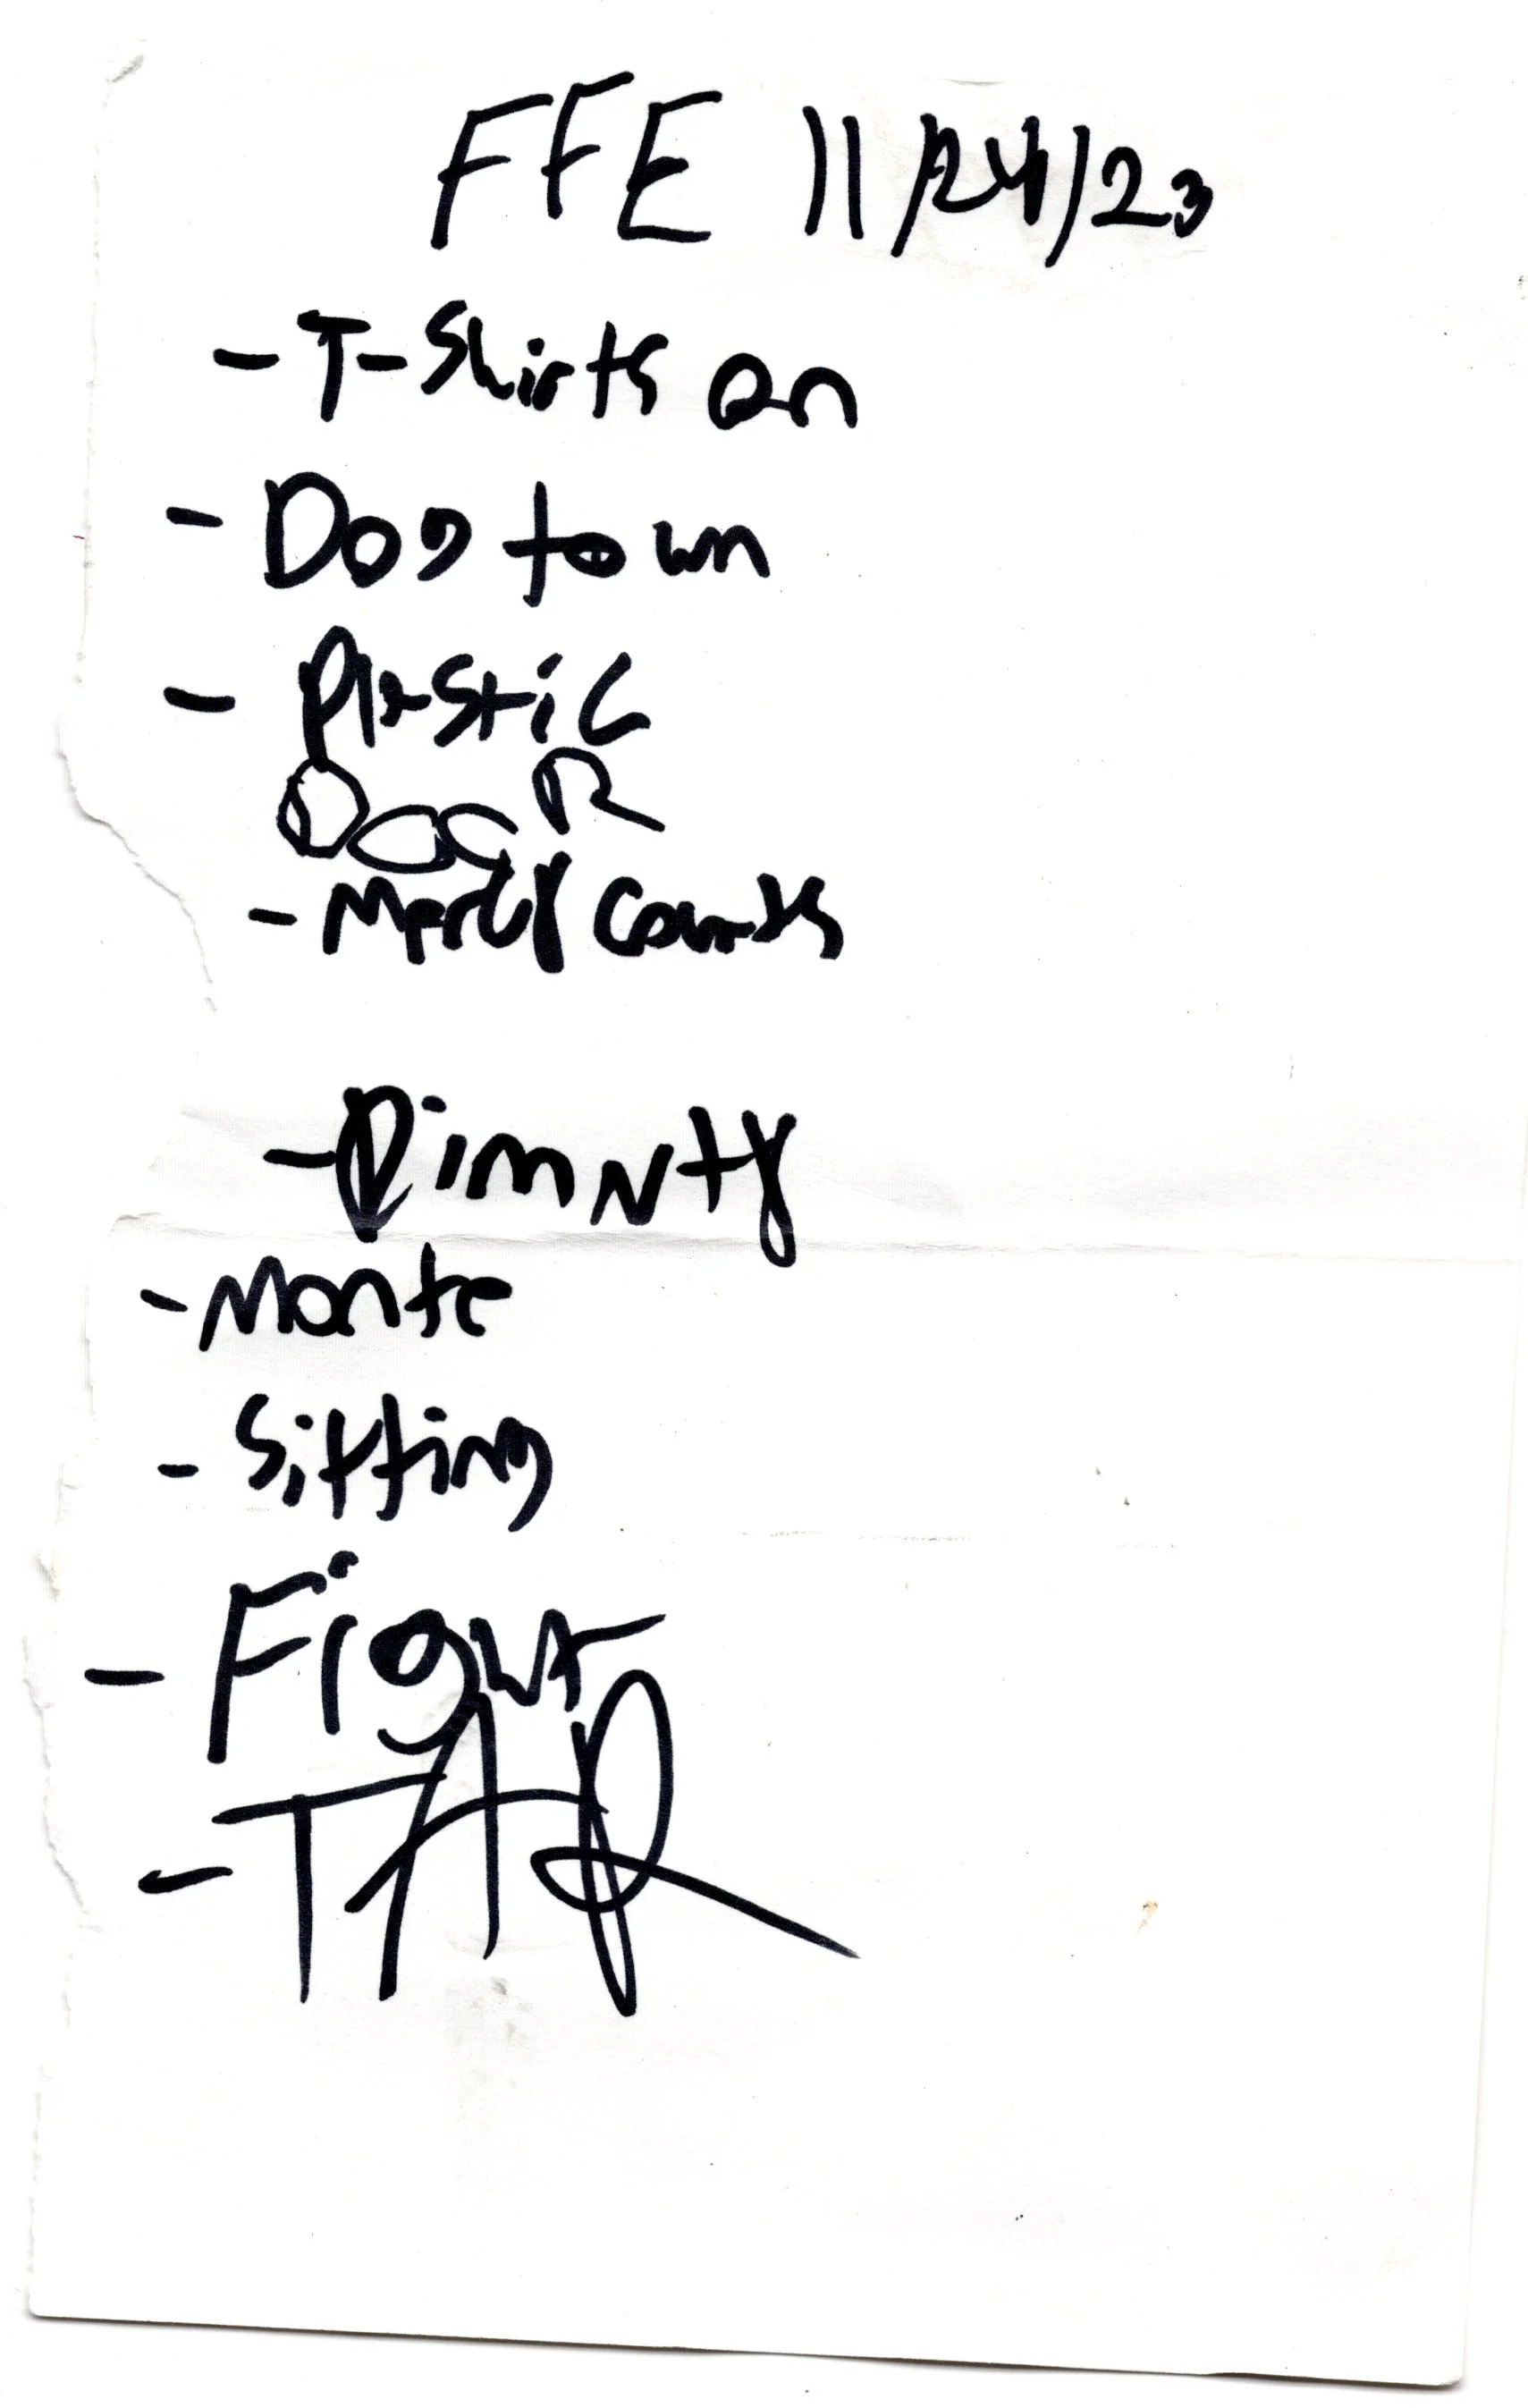 FFE 11/24/23
- T-Shirts on
- Dog town
- Plastic
Door
- Mercy Counts
- Monte
- Sitting
- Fight
- TAR